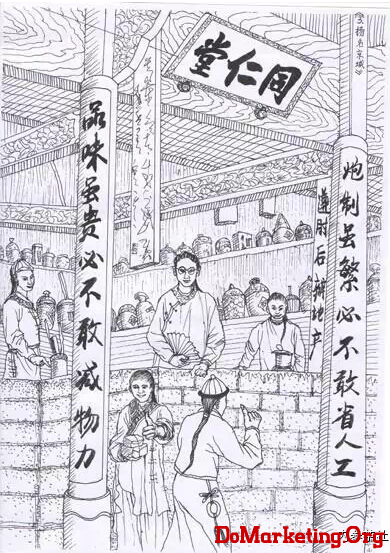 扬名京城》
同仁堂
炮制虽繁必不敢省人工
遵肘后辨地产
品味虽贵必不敢减物力
DoMarketing.Org